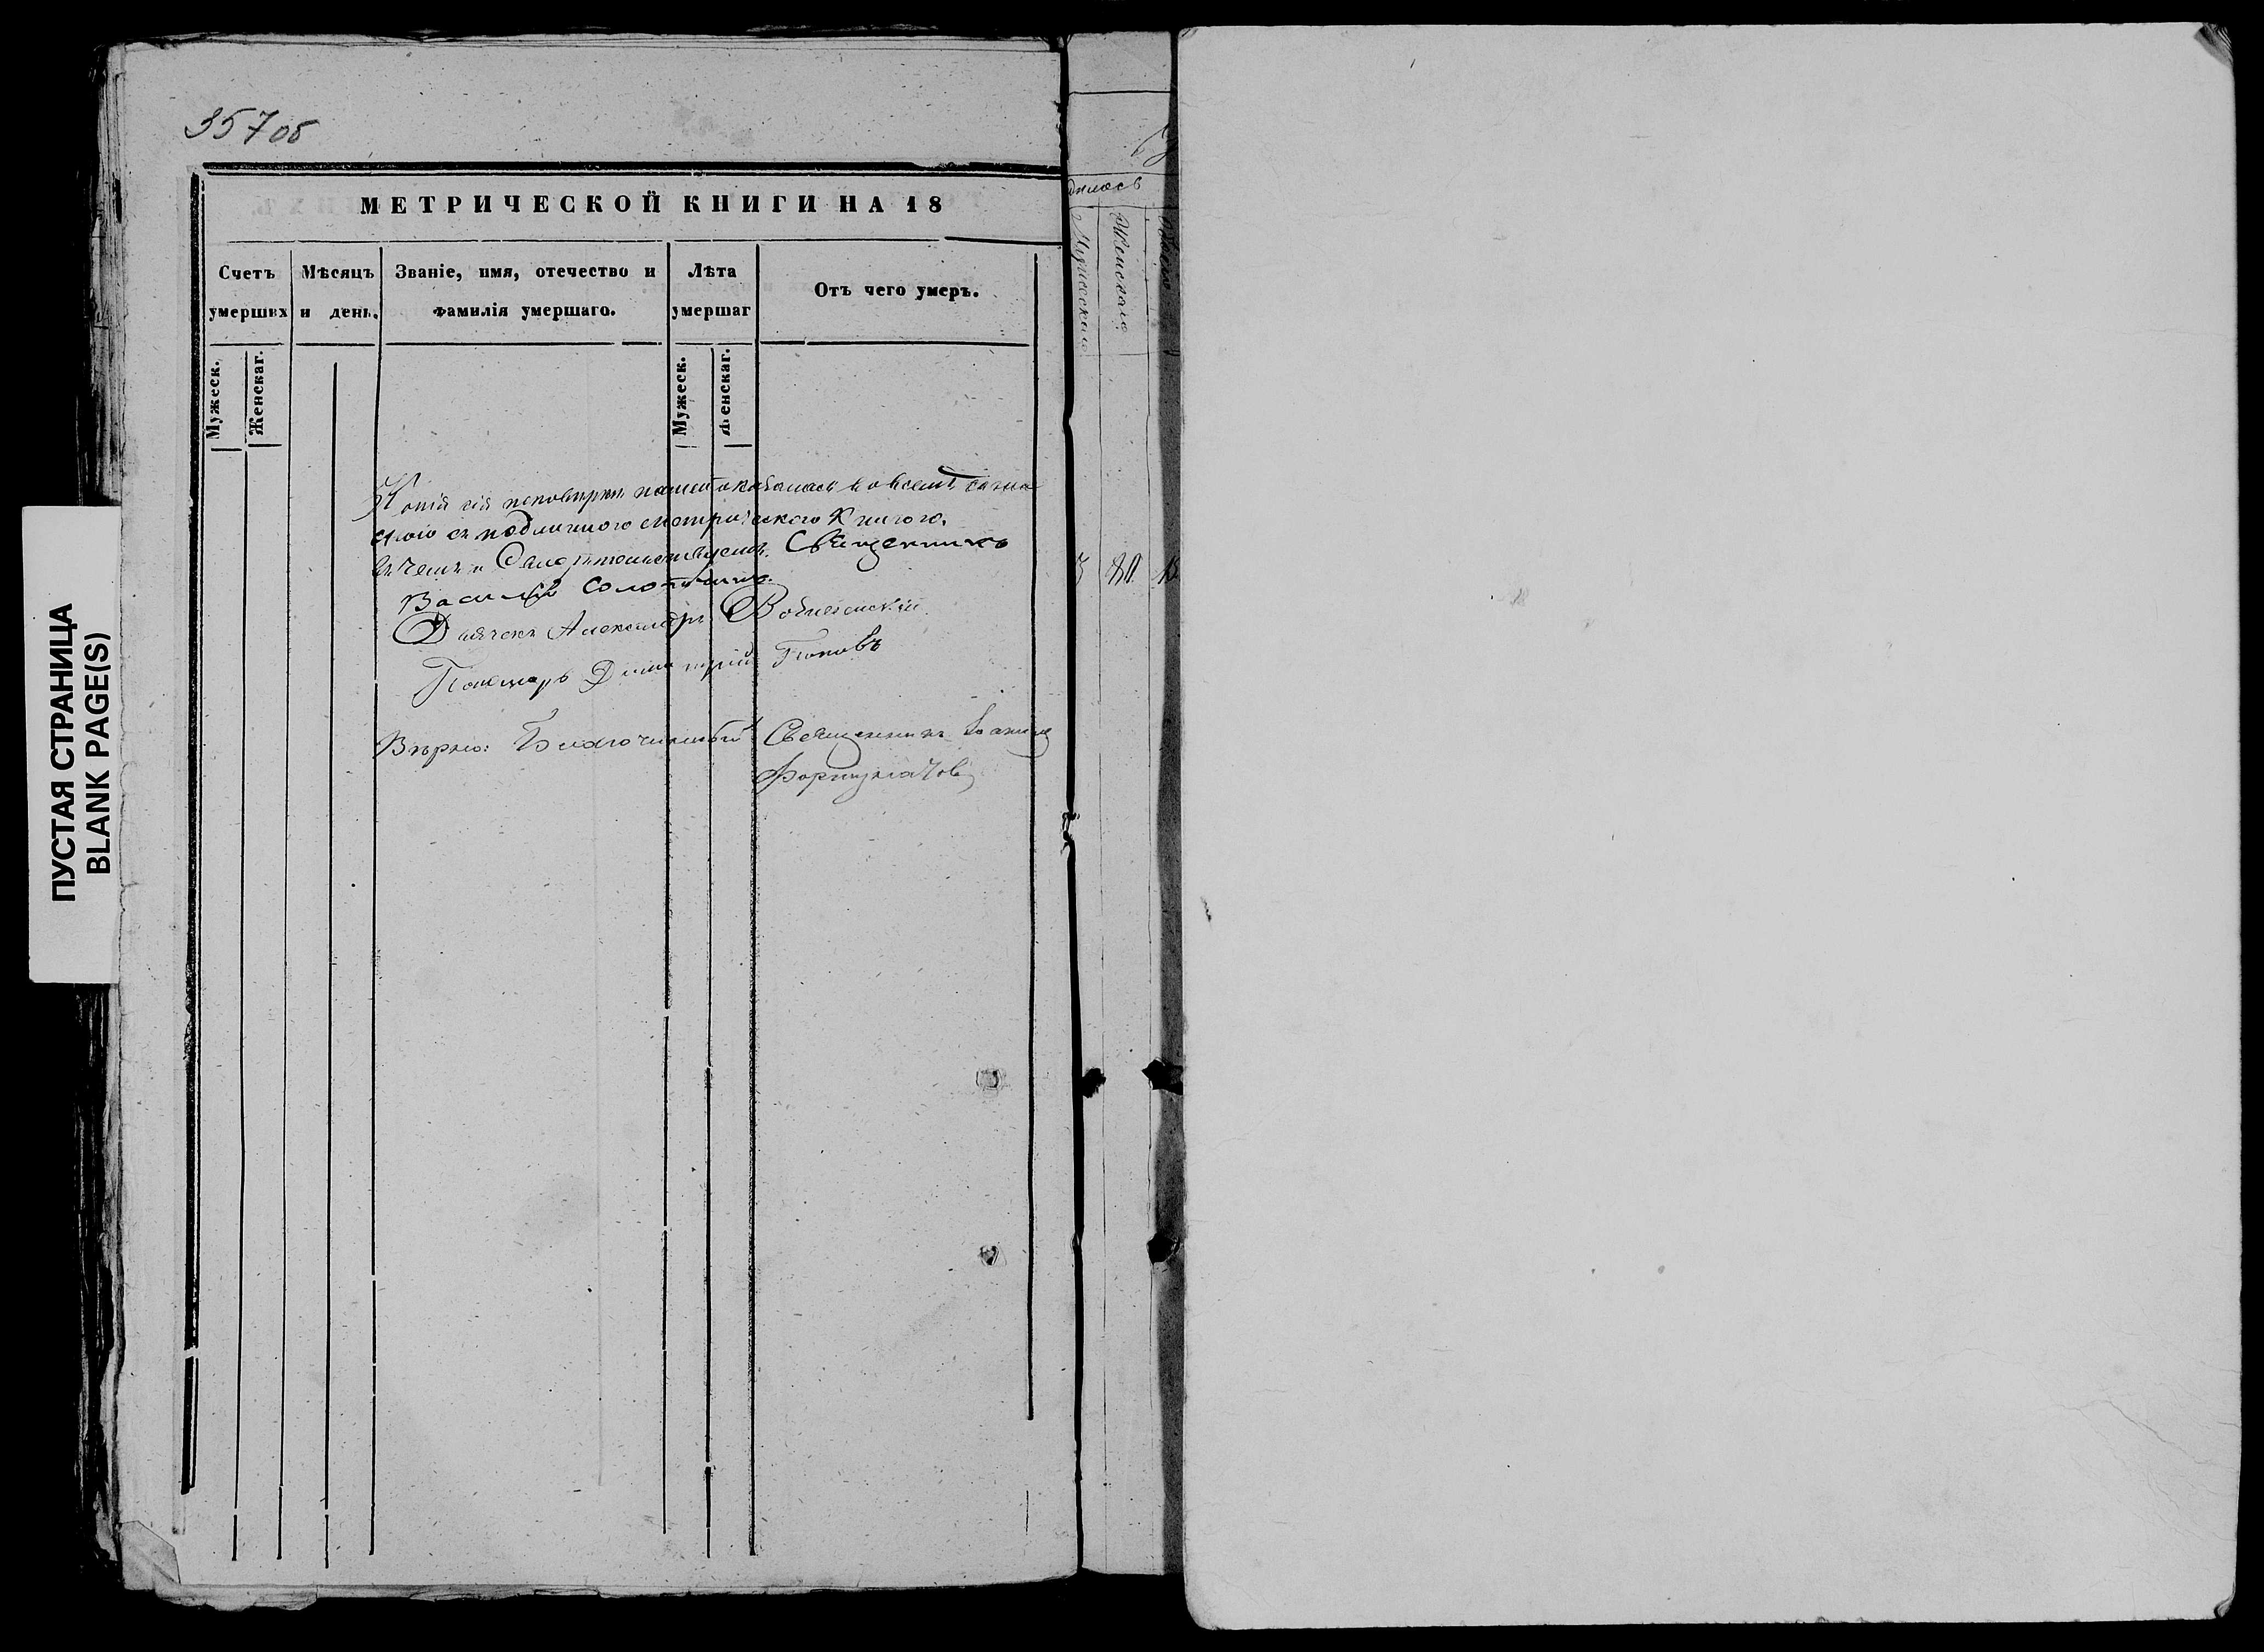 357об
МЕТРИЧЕСКОЙ КНИГИ НА 18
Счетъ умерших
Мѣсяцъ и день.
Званіе, имя, отечество и фамилія умершаго.
Лѣта умершаг
Отъ чего умеръ.
Мужеск.
Женскаг.
Мужеск.
Женскаг.
Копія сія по повѣркѣ нашей оказалась во всемъ согла
сною съ подлинною метрическою Книгою.
въ чемъ и Свидѣтельствуемъ. Священникъ
Василій
Дьячекъ Александръ Вознесенскій
Пономарь Димитрій Поповъ
Вѣрно: Благочинный Священникъ Іоаннъ
Фортунатовъ
Мужеска
Женскаго
ПУСТАЯ СТРАНИЦА
BLANK PAGE(S)